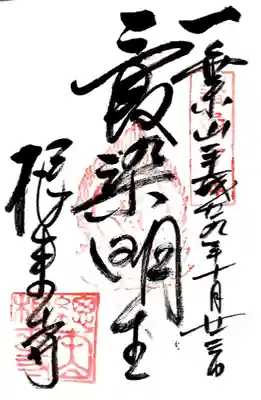 一乗山平成廿九年十月廿三日
愛染明王
根来寺